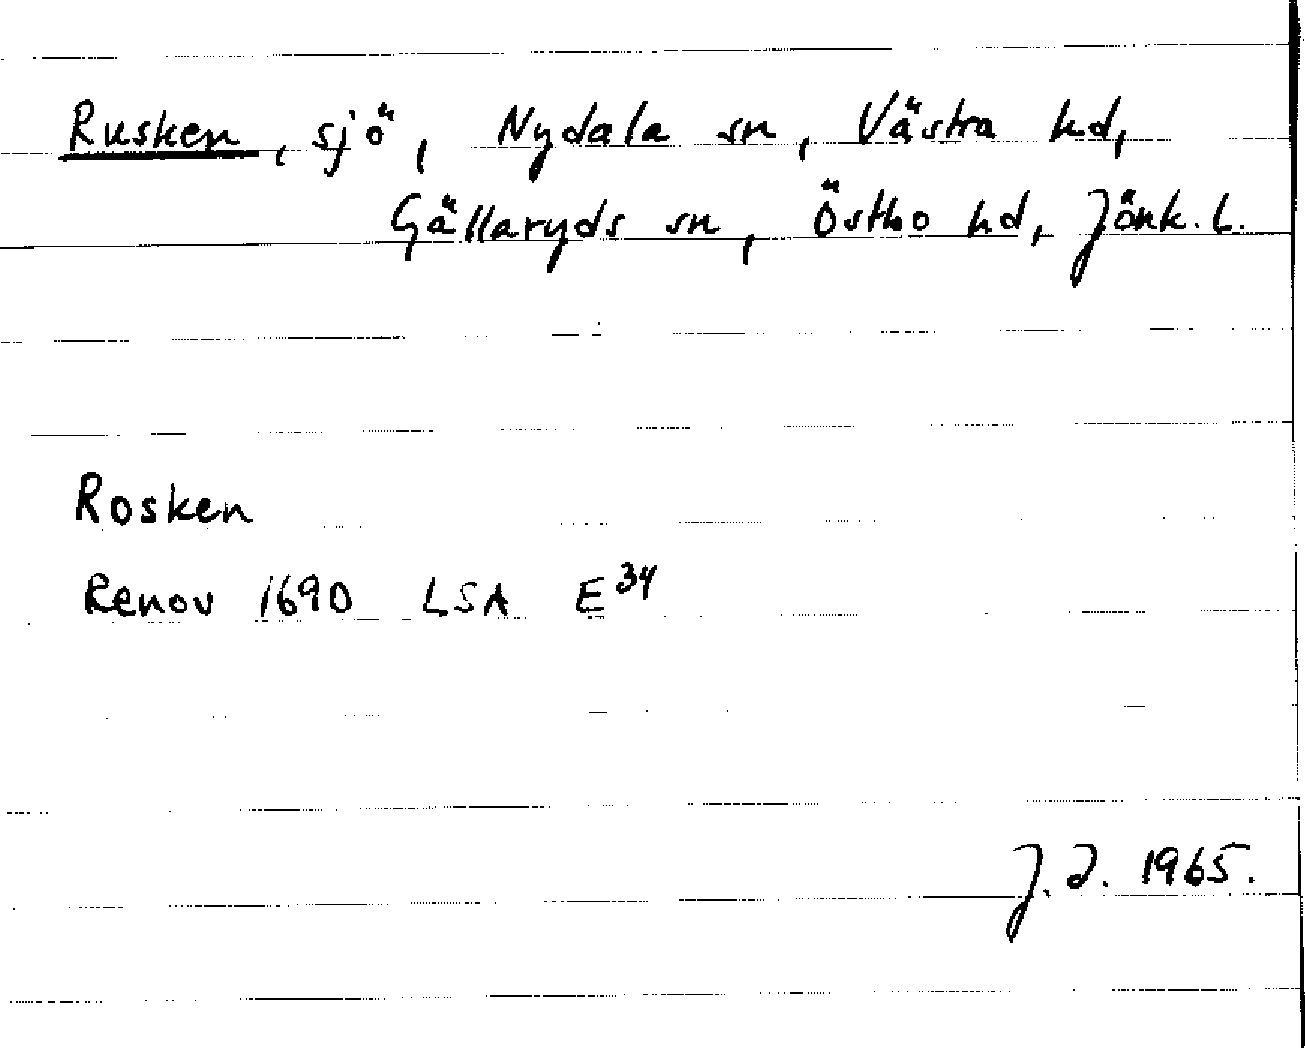 Rusken, sjö, Nydala sn, Västra hd,
Gällaryds sn, Östbo hd, Jönk. L.
Rosken
Renov 1690 LSA E34
J.I. 1965.